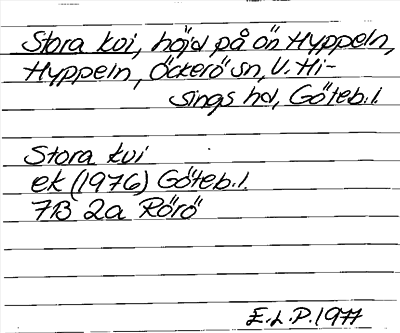 Stora kvi, höjd på ön Hyppeln,
Hyppeln, Öckerö sn, V. Hi-
sings hd, Göteb.l.
Stora kvi
ek (1976) Göteb.l.
7B 2a Rörö
E.L.P. 1977